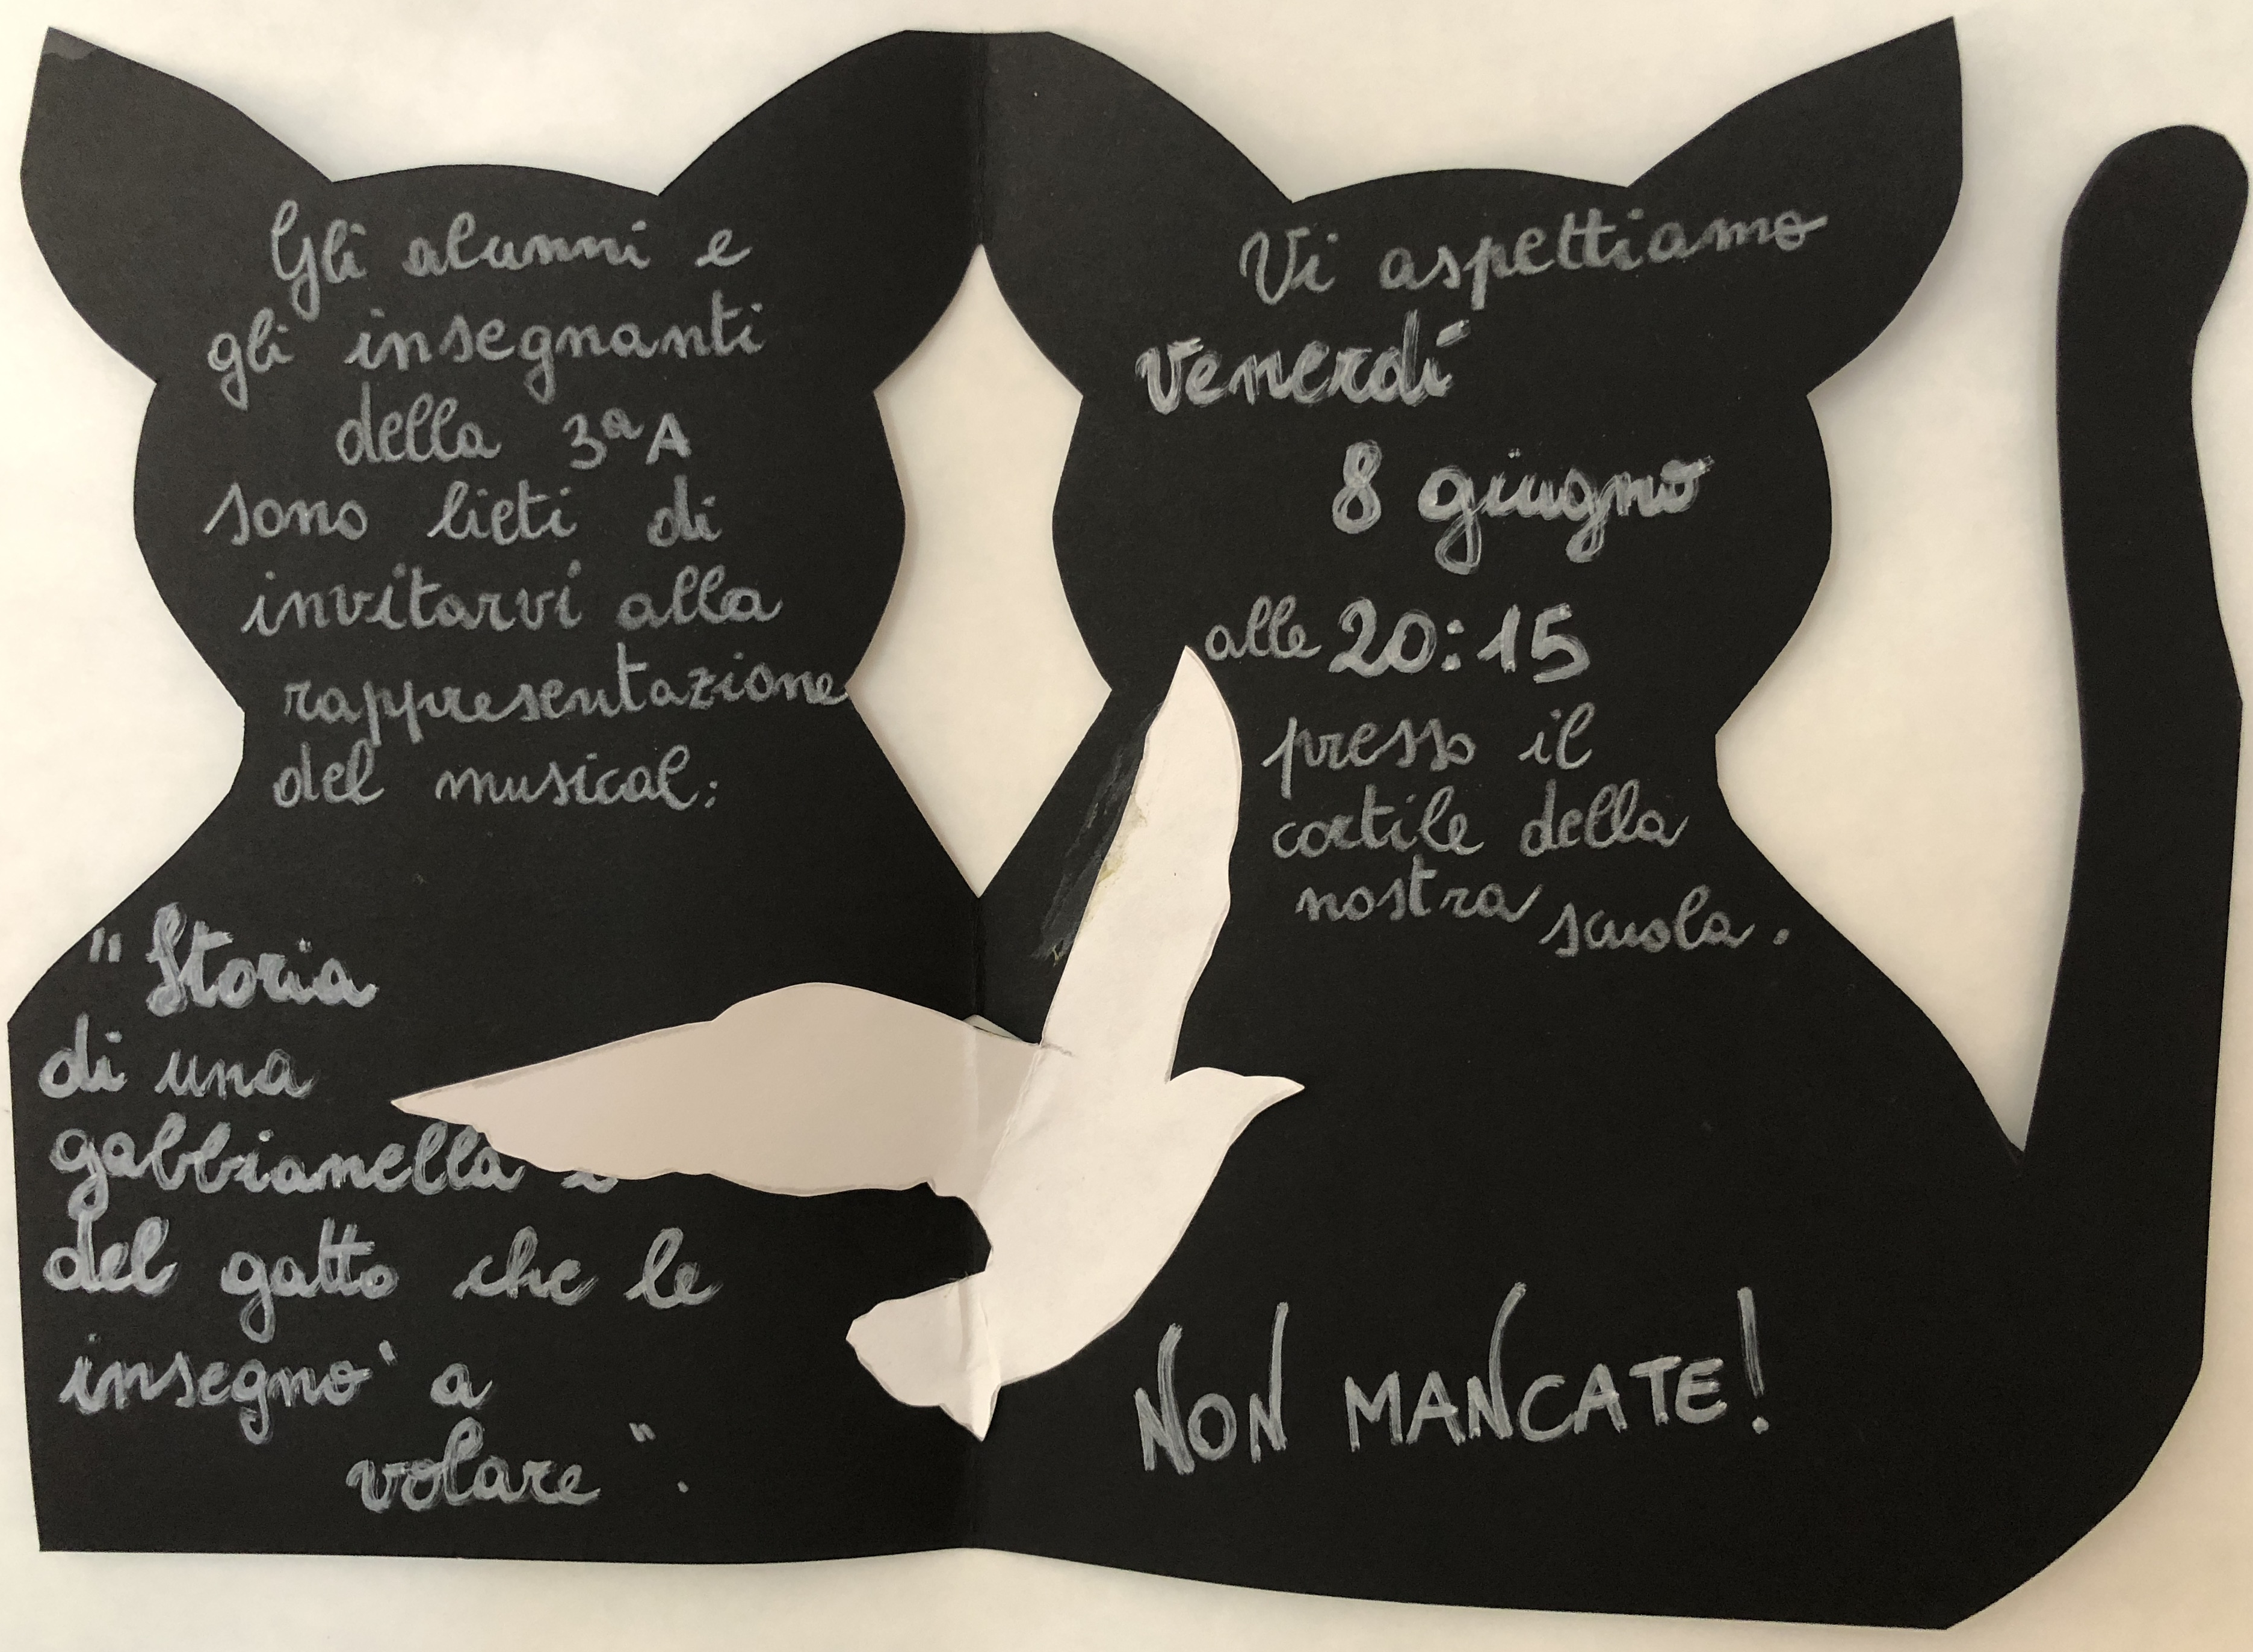 Gli alunni e
gli insegnanti
della 3ª A
sono lieti di
invitarvi alla
rappresentazione
del musical:
"Storia
di una
gabbianella e
del gatto che le
insegnò a
volare".
Vi aspettiamo
venerdí
8 giugno
alle 20:15
presso il
cortile della
nostra scuola.
NON MANCATE!